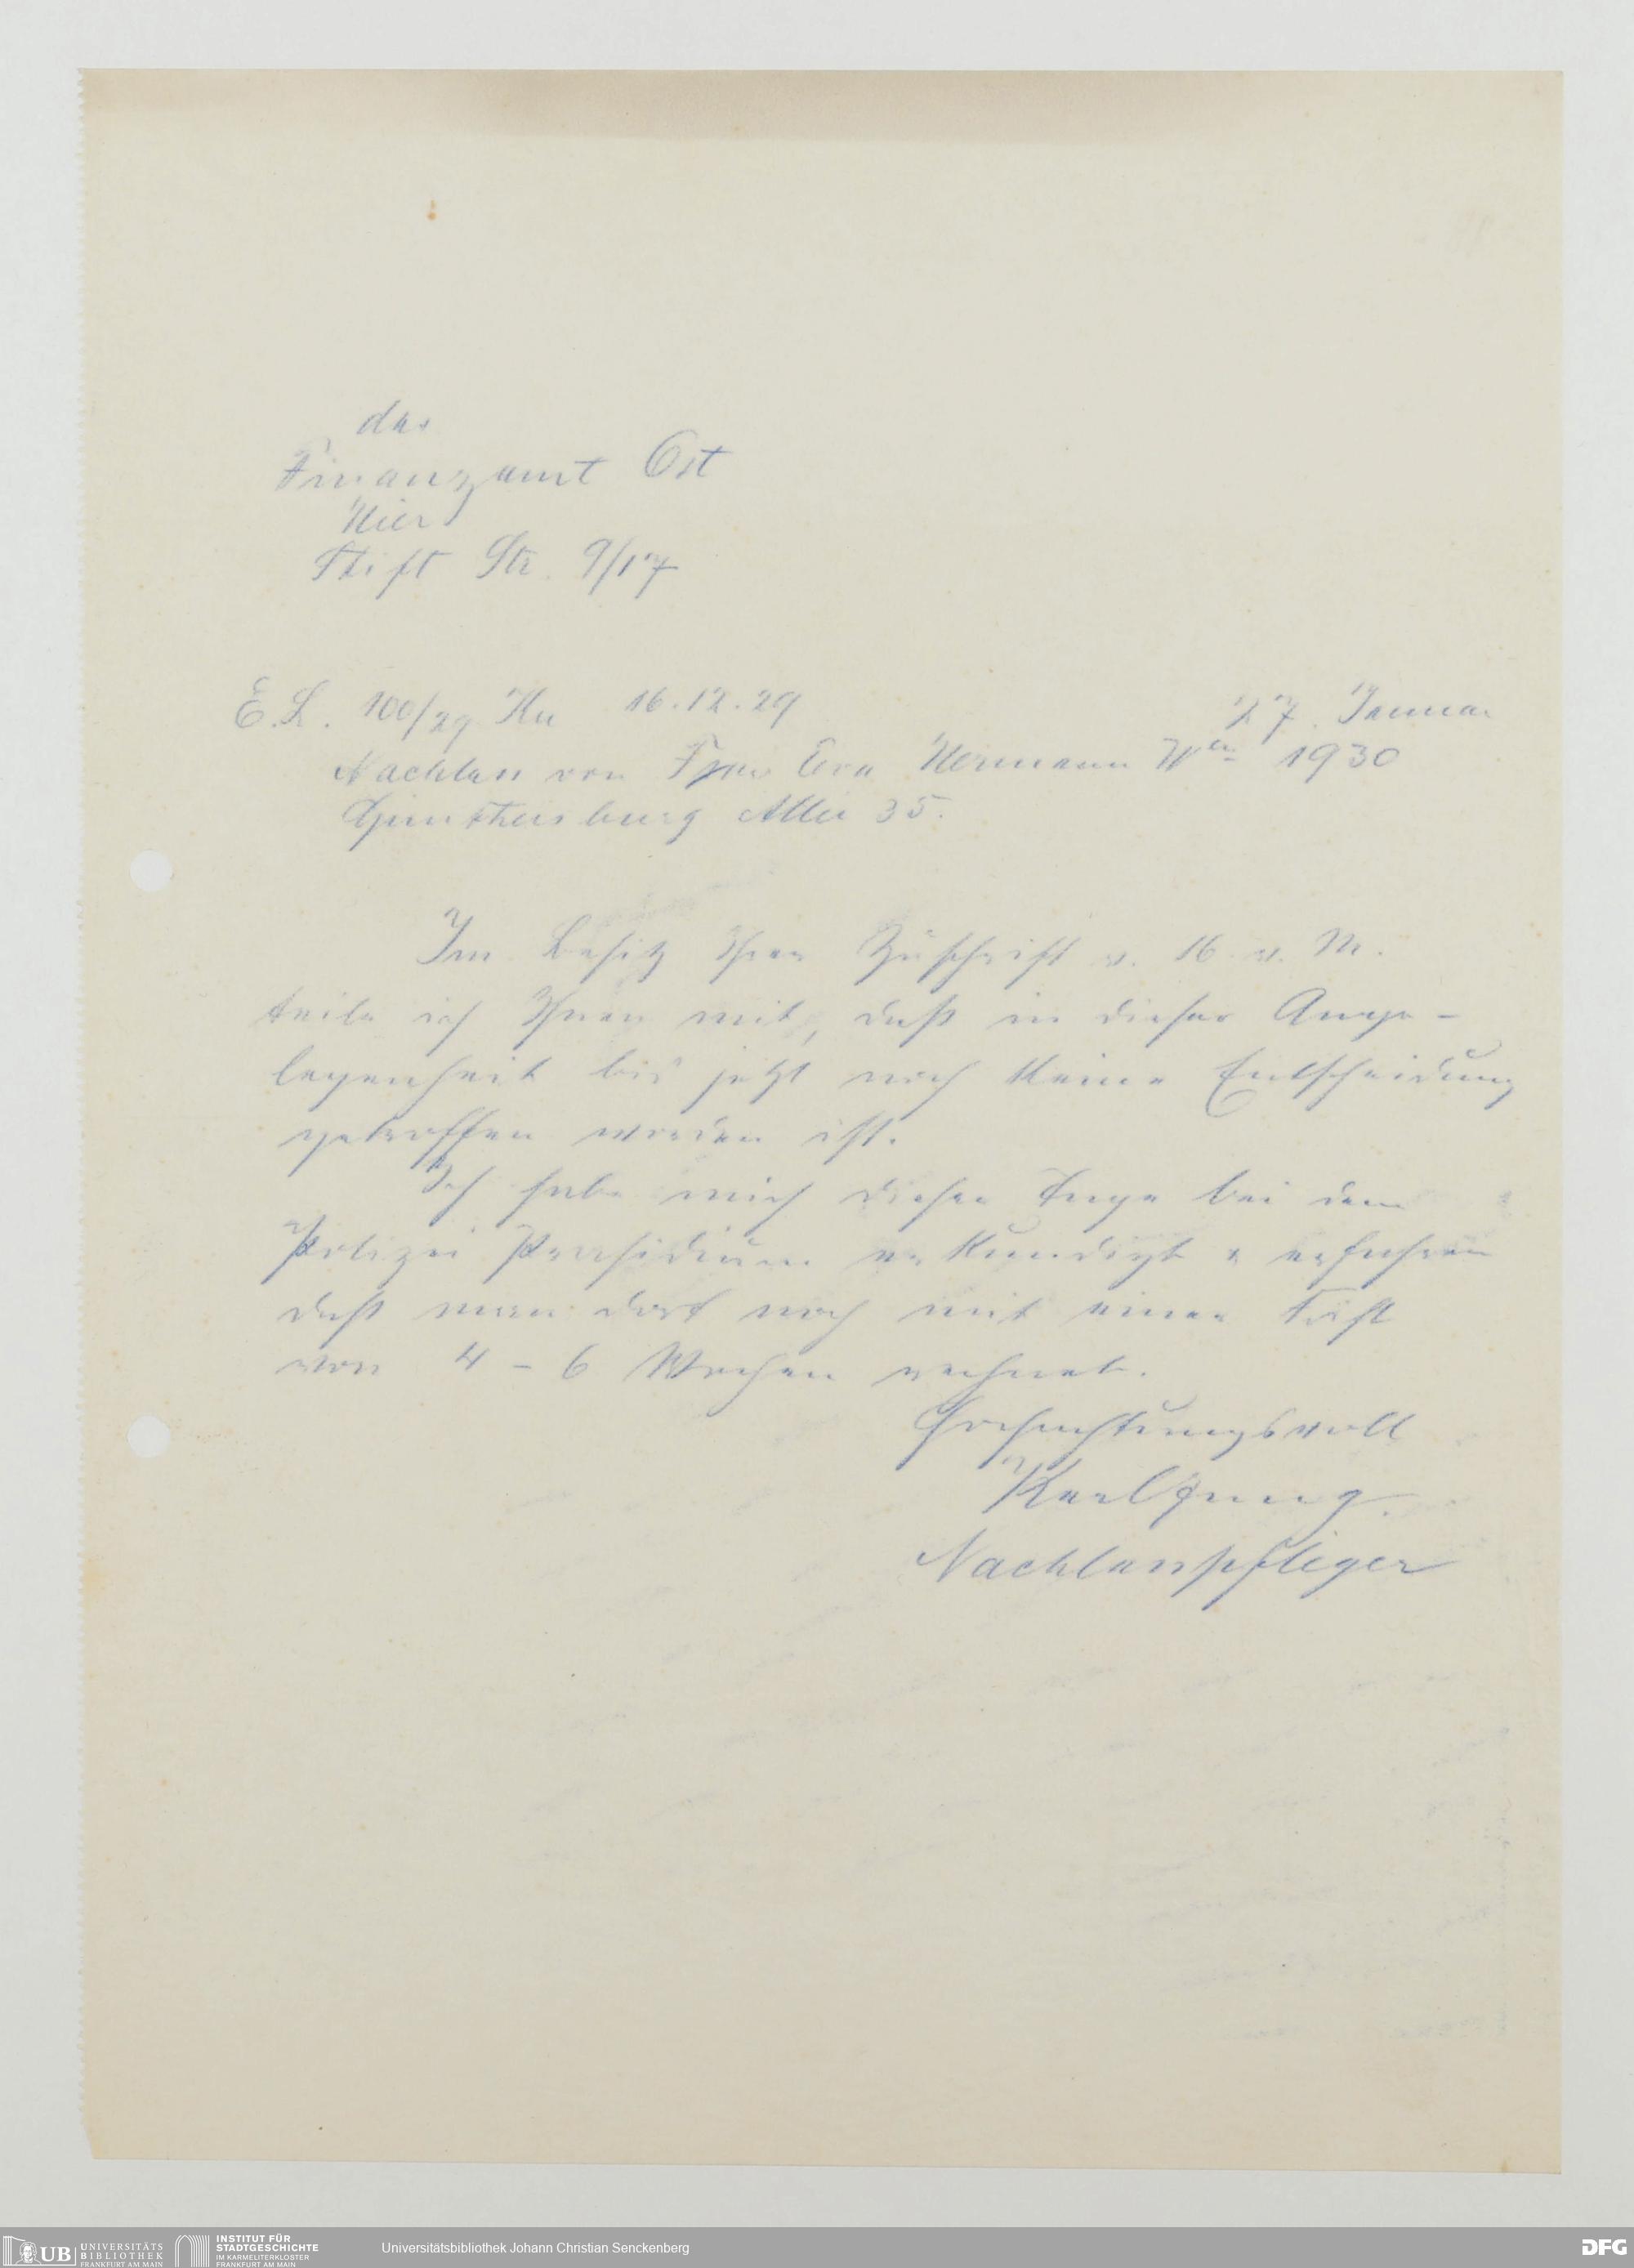 das
Finanzamt Ost
Hier
Stift Str. 9/17
E.L. 100/29 Ku 16.12.29 27. Januar
Nachlass von Frau Eva Hermann Wwe 1930
Günthersburg Allee 35.
Im Besitz Ihrer Zuschrift v. 16. v. M.
teile ich Ihnen mit, daß in dieser Ange-
legenheit bis jetzt noch keine Entscheidung
getroffen worden ist.
Ich habe mich dieser Tage bei dem
Polizei Præsidium erkundigt & erfahren
daß man dort noch mit einer Frist
von 4 - 6 Wochen rechnet.
Hochachtungsvoll
Karl Jung.
Nachlasspfleger
UB UNIVERSITÄTS BIBLIOTHEK FRANKFURT AM MAIN
INSTITUT FÜR STADTGESCHICHTE IM KARMELITERKLOSTER FRANKFURT AM MAIN
Universitätsbibliothek Johann Christian Senckenberg
DFG